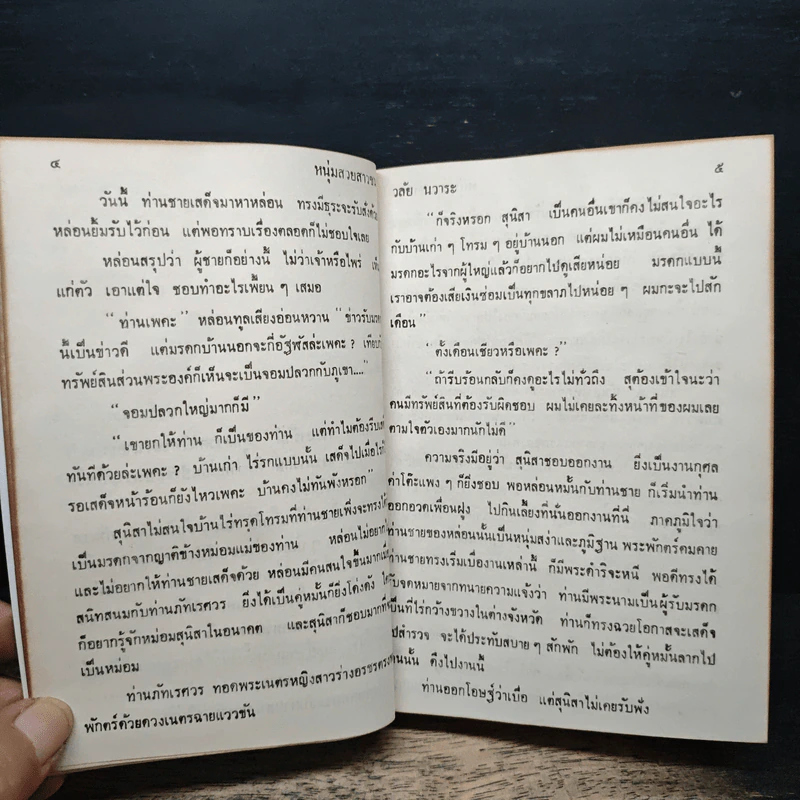 ๔
หนุ่มสวยสาวซน
วันนี้ ท่านชายเสด็จมาหาหล่อน ทรงมีธุระจะรับสั่งด้วย
หล่อนยิ้มรับไว้ก่อน แต่พอทราบเรื่องตลอดก็ไม่ชอบใจเลย
หล่อนสรุปว่า ผู้ชายก็อย่างนี้ ไม่ว่าเจ้าหรือไพร่ เห็น
แก่ตัว เอาแต่ใจ ชอบทำอะไรเพี้ยน ๆ เสมอ
“ท่านเพคะ” หล่อนทูลเสียงอ่อนหวาน “ข่าวรับมรดก
นี้เป็นข่าวดี แต่มรดกบ้านนอกจะกี่อัฐพัสล่ะเพคะ? เทียบกับ
ทรัพย์สินส่วนพระองค์ก็เห็นจะเป็นจอมปลวกกับภูเขา....”
“จอมปลวกใหญ่มากก็มี”
“เขายกให้ท่าน ก็เป็นของท่าน แต่ทำไมต้องรีบเสด็จ
ทันทีด้วยล่ะเพคะ? บ้านเก่า ไร่รกแบบนั้น เสด็จไปเมื่อไรก็ได้
รอเสด็จหน้าร้อนก็ยังไหวเพคะ บ้านคงไม่ทันพังหรอก”
สุนิสาไม่สนใจบ้านไร่ทรุดโทรมที่ท่านชายเพิ่งจะทรงได้
เป็นมรดกจากญาติข้างหม่อมแม่ของท่าน หล่อนไม่อยาก
และไม่อยากให้ท่านชายเสด็จด้วย หล่อนมีคนสนใจขึ้นมากเมื่อ
สนิทสนมกับท่านภัทเรศวร ยิ่งได้เป็นคู่หมั้นก็ยิ่งโด่งดัง ใคร
ก็อยากรู้จักหม่อมสุนิสาในอนาคต และสุนิสาก็ชอบมากที่จะ
เป็นหม่อม
ท่านภัทเรศวร ทอดพระเนตรหญิงสาวร่างอรชรตรง
พักตร์ด้วยดวงเนตรฉายแววขัน
๕
วลัย นวาระ
“ก็จริงหรอก สุนิสา เป็นคนอื่นเขาก็คงไม่สนใจอะไร
กับบ้านเก่า ๆ โทรม ๆ อยู่บ้านนอก แต่ผมไม่เหมือนคนอื่น ได้
มรดกอะไรจากผู้ใหญ่แล้วก็อยากไปดูเสียหน่อย มรดกแบบนี้
เราอาจต้องเสียเงินซ่อมเป็นทุกขลาภไปหน่อย ๆ ผมกะจะไปสัก
เดือน”
“ตั้งเดือนเชียวหรือเพคะ ?”
“ถ้ารีบร้อนกลับก็คงดูอะไรไม่ทั่วถึง สุต้องเข้าใจนะว่า
คนมีทรัพย์สินที่ต้องรับผิดชอบ ผมไม่เคยละทิ้งหน้าที่ของผมเลย
ตามใจตัวเองมากนักไม่ดี”
ความจริงมีอยู่ว่า สุนิสาชอบออกงาน ยิ่งเป็นงานกุศล
ค่าโต๊ะแพง ๆ ก็ยิ่งชอบ พอหล่อนหมั้นกับท่านชาย ก็เริ่มนำท่าน
ออกอวดเพื่อนฝูง ไปกินเลี้ยงที่นั่นออกงานที่นี่ ภาคภูมิใจว่า
ท่านชายของหล่อนนั้นเป็นหนุ่มสง่าและภูมิฐาน พระพักตร์คมคาย
ท่านชายทรงเริ่มเบื่องานเหล่านี้ ก็มีพระดำริจะหนี พอดีทรงได้
รับจดหมายจากทนายความแจ้งว่า ท่านมีพระนามเป็นผู้รับมรดก
เป็นที่ไร่กว้างขวางในต่างจังหวัด ท่านก็ทรงฉวยโอกาสจะเสด็จ
ไปสำรวจ จะได้ประทับสบาย ๆ สักพัก ไม่ต้องให้คู่หมั้นลากไป
งานนั้น ดึงไปงานนี้
ท่านออกโอษฐ์ว่าเบื่อ แต่สุนิสาไม่เคยรับฟัง